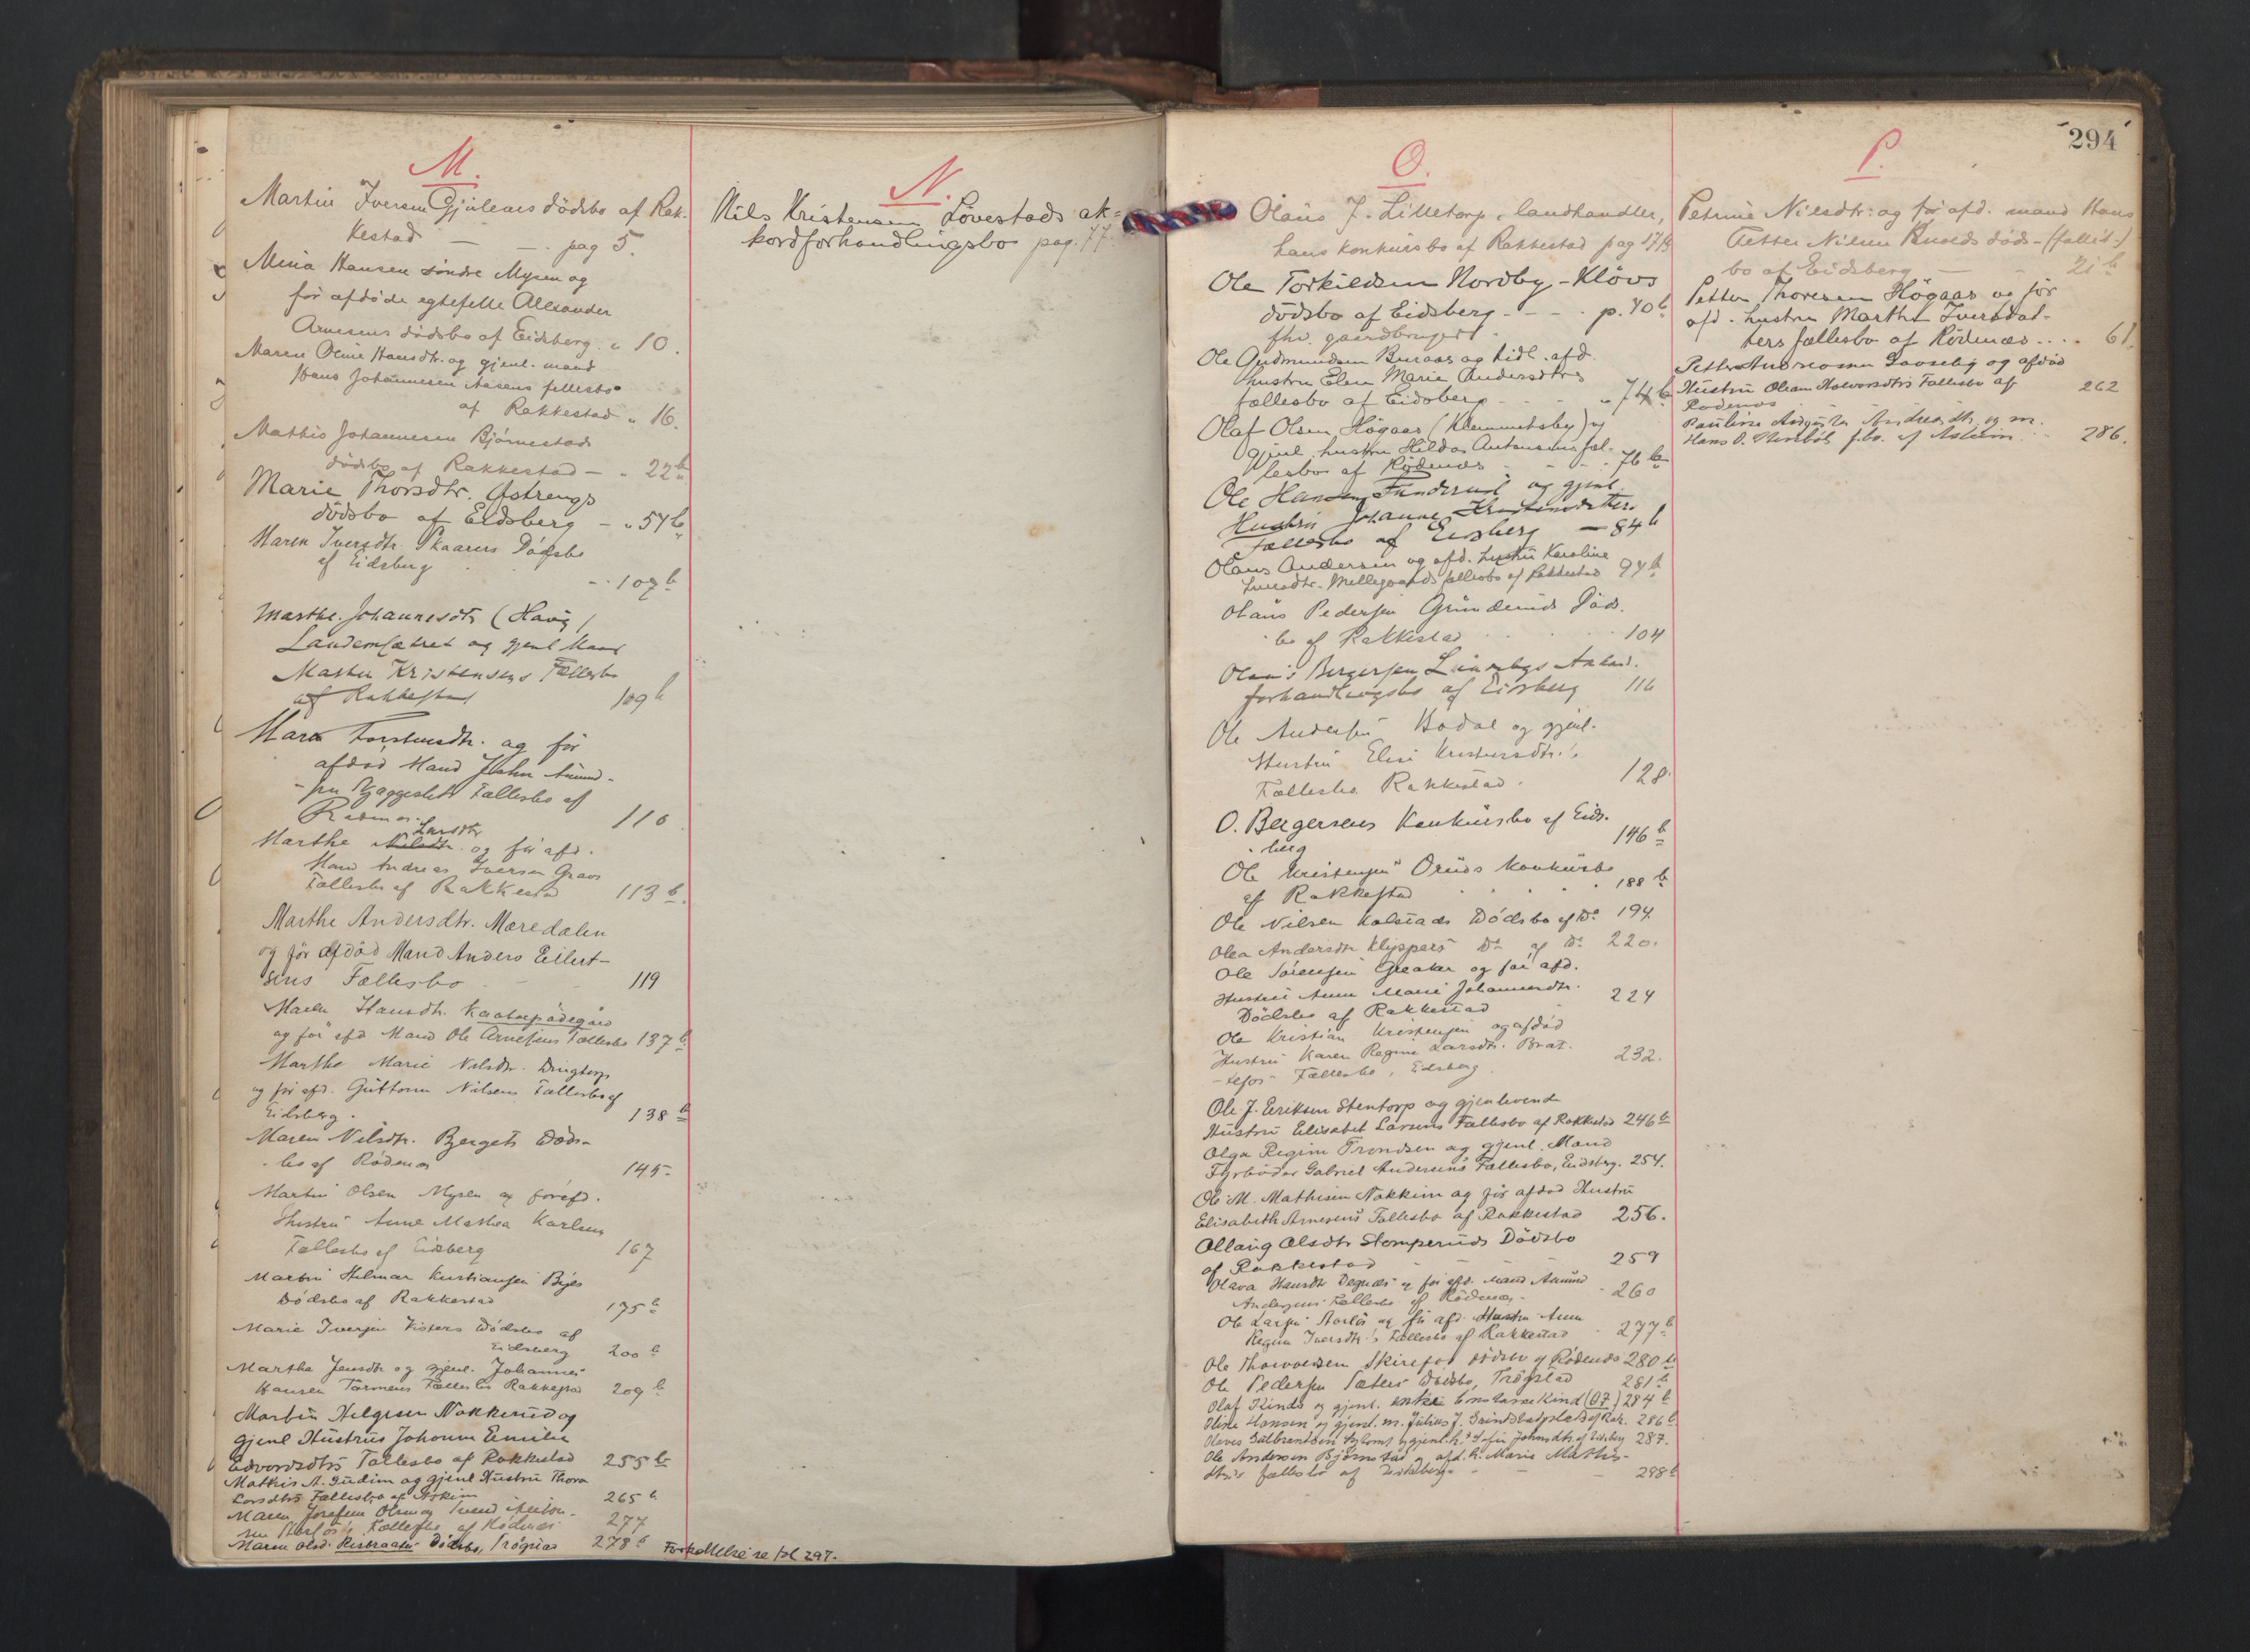 M.
Martin Iversen Gjulems dödsbo af Rak-
kestad — — . pag 5.
Mina Hansen söndre Mysen og
för afdöde egtefelle Alexander
Arnesens dödsbo af Eidsberg. " 10.
Maren Oline Hansdtr. og gjenl. mand
Hans Johannesen Aasens fellesbo
af Rakkestad " 16.
Mathis Johannesen Björnestads
dödsbo af Rakkestad — " 22 b
Marie Thorsdtr. Östrengs
dödsbo af Eidsberg — " 54 b
Maren Iversdtr. Skaarers Dödsbo
af Eidsberg — 107 b
Marthe Johannesdtr (Haug)
Landemsætret og gjenl Mand
Martin Kristensens Fællesbo
af Rakkestad 109 b
Maren Torstensdtr. og för
afdöd Mand John Amund-
sen Fællesbo af
Rødenæs 110
Larsdtr
Marthe Nilsdtr. og för afd.
Mand Andreas Iversen Graas
Fællesbo af Rakkestad 113 b.
Marthe Andersdtr. Mæredalen
og för afdöd Mand Anders Eilert-
sens Fællesbo 119
Maren Hansdtr. Kaatorpödegård
og för afd Mand Ole Arnesens Fællesbo 137 b
Marthe Marie Nilsdtr. Dingtorp
og för afd. Guttorm Nilsens Fællesbo af
Eidsberg. 138 b
Maren Nilsdtr. Bergets Døds-
bo af Rødenæs 145
Martin Olsen Mysen og för afd.
Hustru Anne Mathea Karlsens
Fællesbo af Eidsberg 167
Martin Hilmar Kristiansen Byes
Dödsbo af Rakkestad 175 b
Marie Iversen Visters Dödsbo af
Eidsberg 200 b
Marthe Jensdtr og gjenl. Johannes
Hansen Tormens Fællesbo Rakkestad 209 b
Martin Helgesen Nakkerud og
gjenl Hustrus Johanne Emilie
Edvardsdtrs Fallesbo af Rakkestad 255 b
Mathis A. Gudim og gjenl Hustru Thora
Larsdtrs Fallesbo af Askim 265 b
Maren Josefine Olsen og Svend Anton-
sen Fællesbo af Rødenæs 277
Maren Olsd. Risbraaten Dödsbo, Trögstad 278 b Fortsættelse se fol 297.
N.
Nils Kristensen Lövestads ak-
kordforhandlingsbo pag. 77.
294
O.
Olaus J. Lilletorp, landhandler,
hans konkursbo af Rakkestad pag 17 b
Ole Torkildsen Nordby-Klövs
dödsbo af Eidsberg - - - . p. 70 b
fhv. gaardbruger.
Ole Gudmundsen Buraas og tidl. afd.
hustru Elen Marie Andersdtrs
fællesbo af Eidsberg - - - " 74 b
Olaf Olsen Högaas (Klemmetsby) og
gjenl. hustru Hilda Antonsens fæl-
lesbo af Rødenæs - - - 76 b
Ole Hansen Funderud og gjenl.
Hustru Johanne Kristensdatters
Fællesbo af Eidsberg — 84 b
Olaus Andersen og afd. hustru Karoline
Mellegaards fellesbo af Rakkestad 94 b
Olaus Pedersen Grunderuds Döds-
bo af Rakkestad 104
Olaus Bergersen Lundebys Akkord-
forhandlingsbo af Eidsberg 116
Ole Andersen Bodal og gjenl.
Hustru Elise Kristensdtr.'s
Fællesbo Rakkestad. 128
O. Bergersens Konkursbo af Eids-
berg 146 b
Ole Kristensen Oruds Konkursbo
af Rakkestad 188 b
Ole Nilsen Kolstads Dödsbo af Do 194
Olea Andersdtr Klyppers Do af Do 220.
Ole Sörensen Greaker og för afd.
Hustru Anne Marie Johannesdtr.
Dödsbo af Rakkestad 224
Ole Kristian Kristensen og afdöd
Hustru Karen Regine Larsdtr. Brat-
-fos Fællesbo, Eidsberg. 232.
Ole J. Eriksen Stentorp og gjenlevende
Hustru Elisabet Larsens Fallesbo af Rakkestad 246 b
Olga Regine Trondsen og gjenl. Mand
Fyrböder Gabriel Andersens Fallesbo, Eidsberg. 254.
Ole M. Mathisen Nakkim og för afdöd Hustru
Elisabeth Arnesens Fallesbo af Rakkestad 256.
Ollaug Olsdtr Stomperuds Dödsbo
af Rakkestad 259
Olava Hansdtr Degnæs og för afd. Mand Amund
Andersens Fællesbo af Rödenæs. 260
Ole Larsen og för afd. Hustru Anne
Regine Iversdtr.'s Fællesbo af Rakkestad 277 b
Ole Thorvaldsen Skirefos dödsbo af Rödenæs 280 b
Ole Pedersen Sæters Dödsbo, Trögstad 281 b
Olaf Kinds og gjenl. enke Kind (07) 284 b
Oline Hansen og gjenl. m. Julius J. af Rak. 286 b
Olaves Gulbrandsen og gjenl. h. Johnsdtr. af Eidsberg 287.
Ole Andersen Björnstad og afd. h. Marie Mathis-
dtrs fællesbo af Eidsberg. — — 298 b
P.
Petrine Nilsdtr: og för afd. mand Hans
Petter Nilsen döds-(fallit-)
bo af Eidsberg — " 21 b
Petter Thoresen Högaas og för
afd. hustru Marthe Iversdat-
ters fællesbo af Rödenæs . . . . 61.
Petter Andreassen og afdöd
Hustru Oleane Halvorsdtrs Fallesbo af
Rødenæs 262
Pauline Augusta Andreasdtr. og m.
Hans O. f.bo. af Askim . . 286.